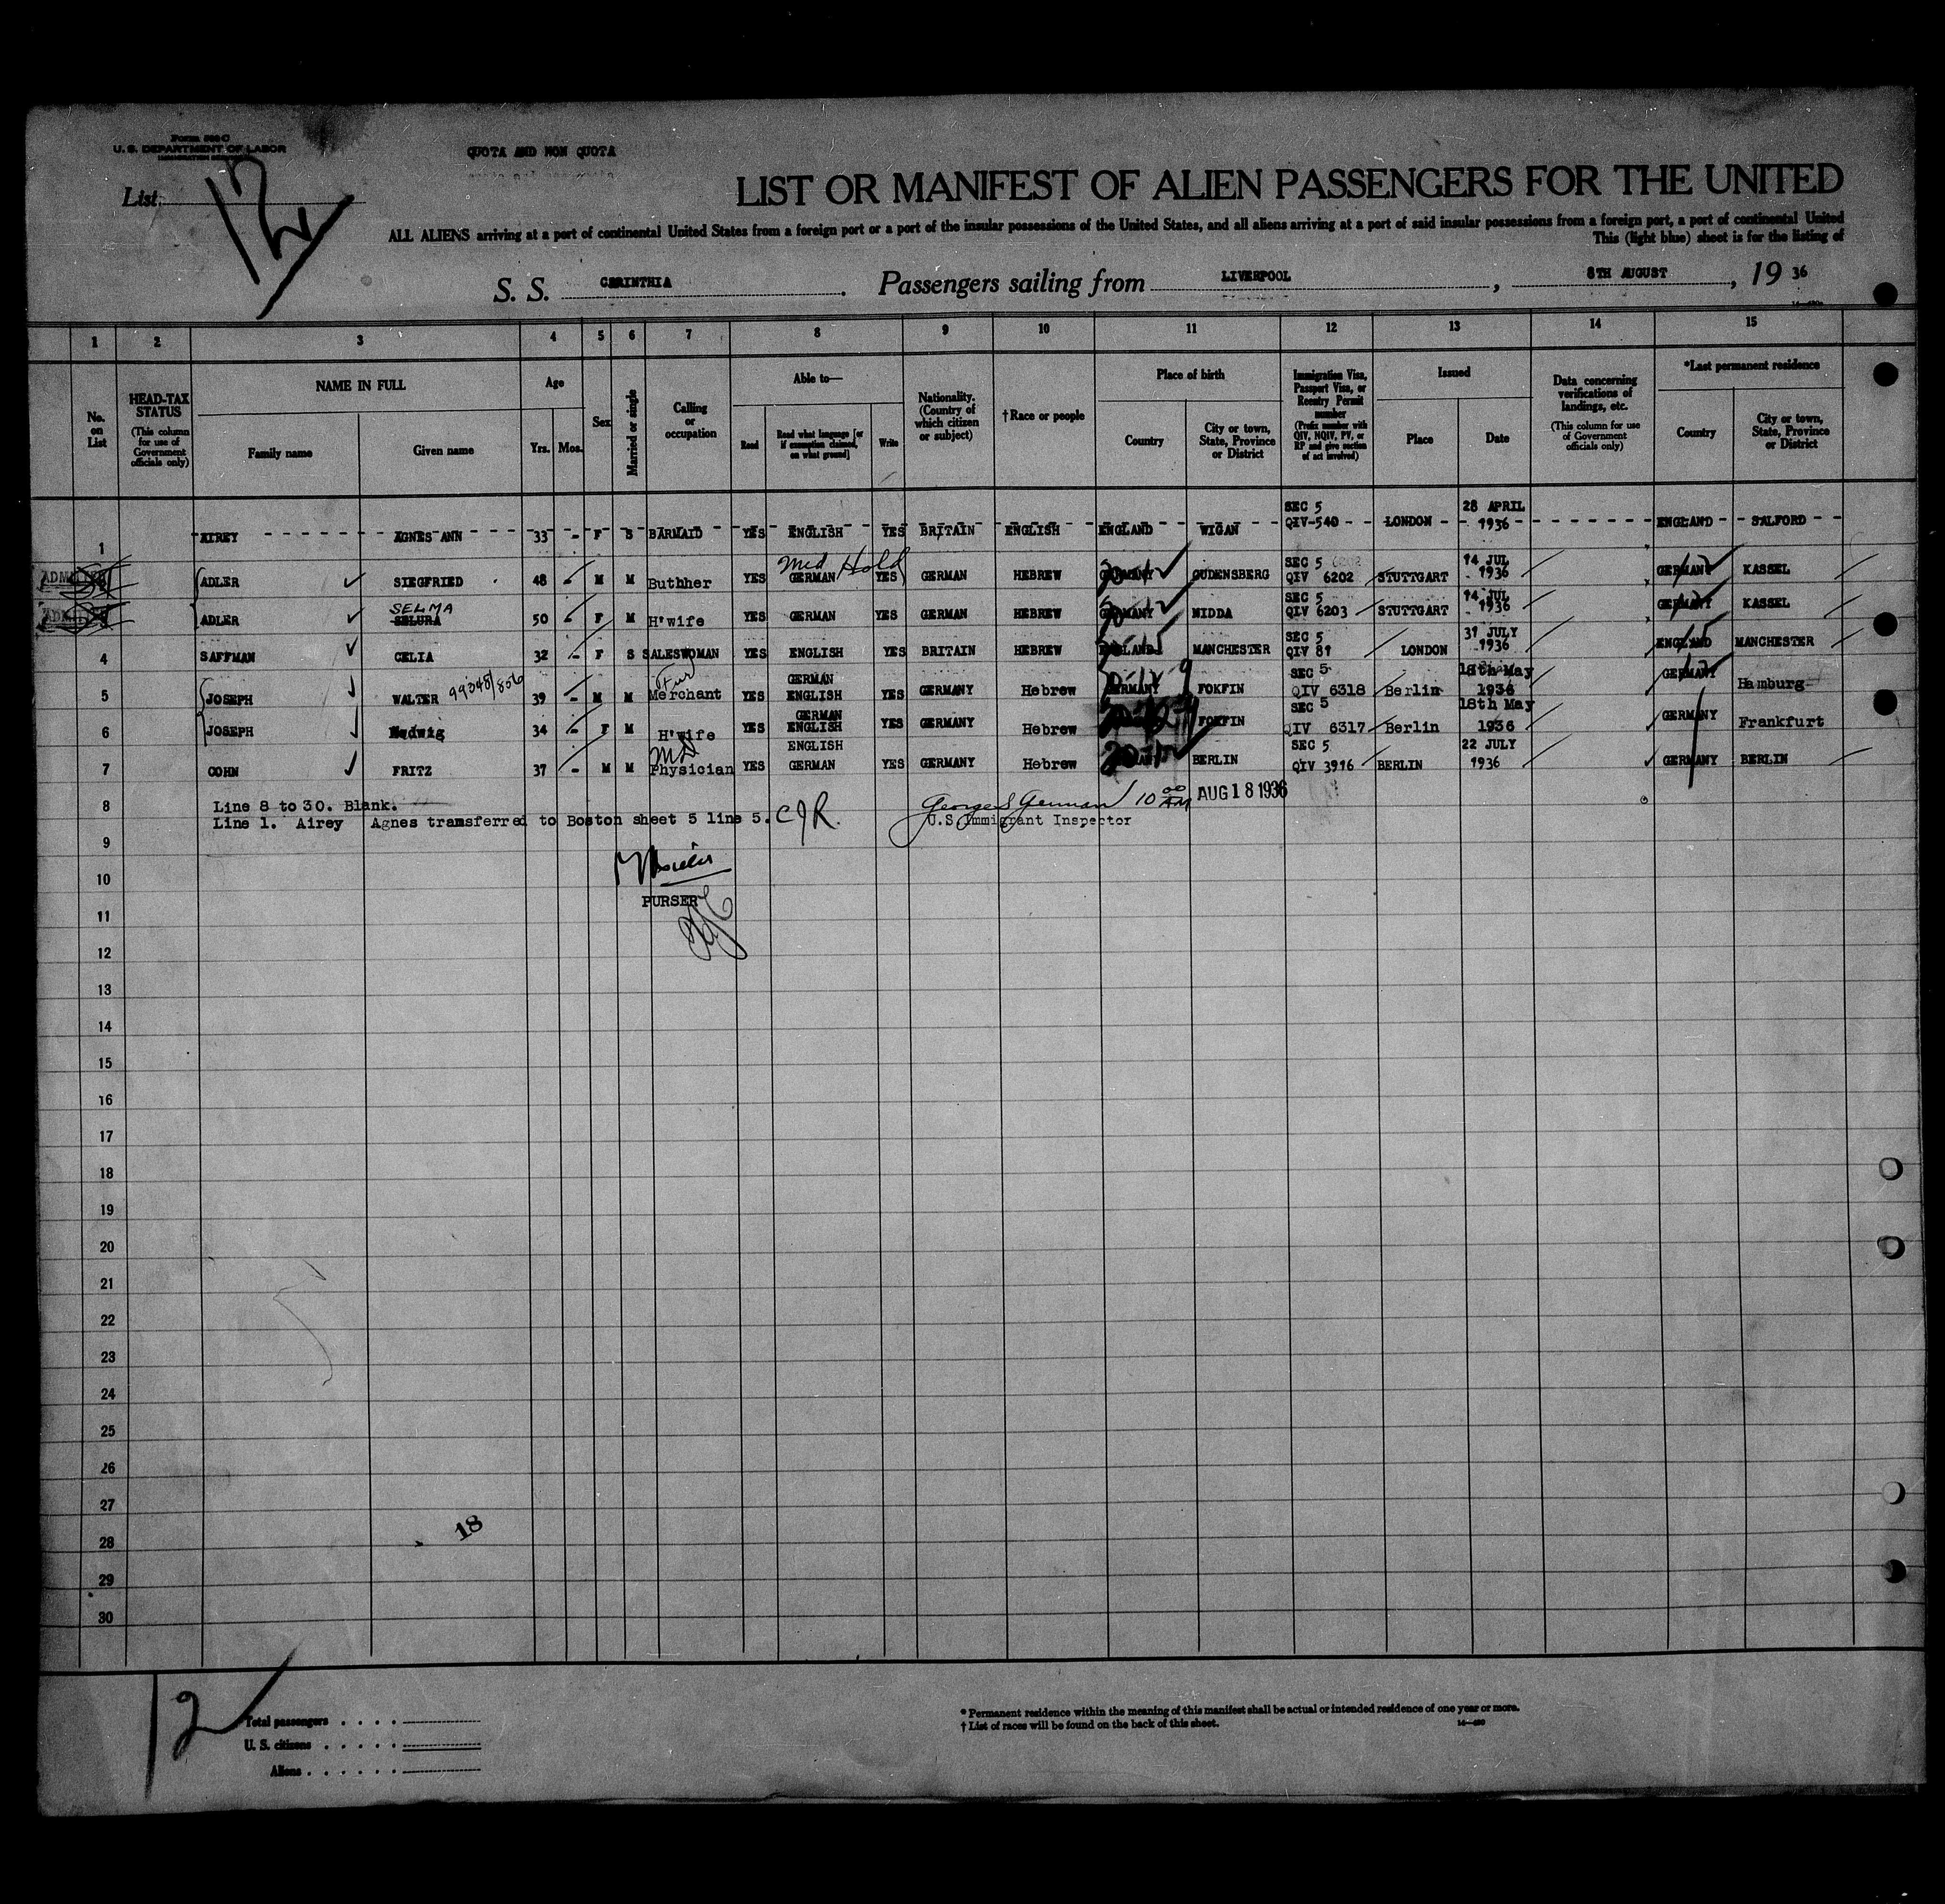 Form 500 C
U. S. DEPARTMENT OF LABOR
QUOTA AND NON QUOTA
List 12
LIST OR MANIFEST OF ALIEN PASSENGERS FOR THE UNITED
ALL ALIENS arriving at a port of continental United States from a foreign port or a port of the insular possessions of the United States, and all aliens arriving at a port of said insular possessions from a foreign port, a port of continental United
This (light blue) sheet is for the listing of
S. S. CARINTHIA Passengers sailing from LIVERPOOL, 8TH AUGUST, 19 36
1 2 3 4 5 6 7 8 9 10 11 12 13 14 15
No. on List
HEAD-TAX STATUS (This column for use of Government officials only)
NAME IN FULL Family name Given name
Age Yrs. Mos.
Sex
Married or single
Calling or occupation
Able to— Read Read what language [or if exemption claimed, on what ground] Write
Nationality. (Country of which citizen or subject)
†Race or people
Place of birth Country City or town, State, Province or District
Immigration Visa, Passport Visa, or Reentry Permit number (Prefix number with QIV, NQIV, PV, or RP and give section of act involved)
Issued Place Date
Data concerning verifications of landings, etc. (This column for use of Government officials only)
*Last permanent residence Country City or town, State, Province or District
1 AIREY AGNES ANN 33 - F S BARMAID YES ENGLISH YES BRITAIN ENGLISH ENGLAND WIGAN SEC 5 QIV-540 LONDON 28 APRIL 1936 ENGLAND SALFORD
Med Hold
ADMITTED ADLER SIEGFRIED 48 - M M Buthher YES GERMAN YES GERMAN HEBREW GERMANY GUDENSBERG SEC 5 QIV 6202 STUTTGART 14 JUL 1936 GERMANY KASSEL
ADLER SELMA 50 - F M H'wife YES GERMAN YES GERMAN HEBREW GERMANY NIDDA SEC 5 QIV 6203 STUTTGART 14 JUL 1936 GERMANY KASSEL
4 SAFFMAN CELIA 32 - F S SALESWOMAN YES ENGLISH YES BRITAIN HEBREW ENGLAND MANCHESTER SEC 5 QIV 81 LONDON 31 JULY 1936 ENGLAND MANCHESTER
5 JOSEPH WALTER 99348/806 39 - M M Fur Merchant YES GERMAN ENGLISH YES GERMANY Hebrew GERMANY FOKFIN SEC 5 QIV 6318 Berlin 18th May 1936 GERMANY Hamburg
6 JOSEPH Hedwig 34 - F M H'wife YES GERMAN ENGLISH YES GERMANY Hebrew FOKFIN SEC 5 QIV 6317 Berlin 18th May 1936 GERMANY Frankfurt
7 COHN FRITZ 37 - M M MD Physician YES ENGLISH GERMAN YES GERMANY Hebrew BERLIN SEC 5 QIV 3916 BERLIN 22 JULY 1936 GERMANY BERLIN
8 Line 8 to 30. Blank. George S German 10 00 AM AUG 18 1936
Line 1. Airey Agnes transferred to Boston sheet 5 line 5. CJR U.S. Immigrant Inspector
9
10
PURSER
11
12
13
14
15
16
17
18
19
20
21
22
23
24
25
26
27
18
28
29
30
12
Total passengers
U. S. citizens
Aliens
* Permanent residence within the meaning of this manifest shall be actual or intended residence of one year or more.
† List of races will be found on the back of this sheet.